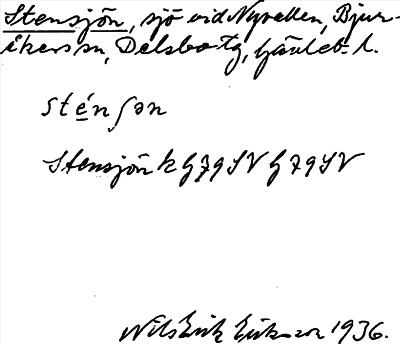 Stensjön, sjö vid Nyvallen, Bjur-
åkers sn, Delsbo tg, Gävleb. l.
sténʃən
Stensjön k G79SV G79SV
Nils Erik Eriksson 1936.